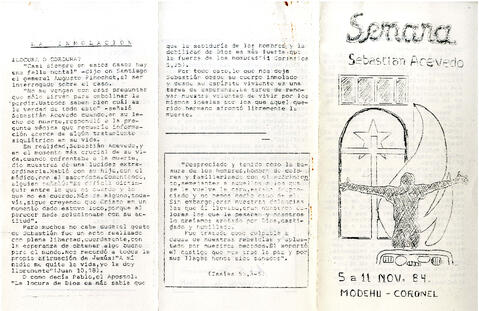 LA INMOLACION
¿LOCURA O CORDURA?
"Casi siempre en estos casos hay
una falla mental" -dijo en Santiago
el general Augusto Pinochet, al ser
interrogado sobre el caso.
"No me vengan con esas preguntas
que sólo sirven para embolinar la
perdiz. Ustedes saben bien cuál es
la verdad de todo esto" - señaló
Sebastián Acevedo cuando, en su le-
cho de muerte, respondió a la pre-
gunta médica que
ción acerca de algún
siquiátrico en su vida.
En realidad, Sebastián Acevedo, y
en el momento más crucial de su vi-
da, cuando enfrentaba a la muerte,
dio muestras de una lucidez extra-
ordinaria. Habló con su hijo, con el
médico, con el sacerdote.
alguien señaló: "Es difícil distin-
guir entre lo que es cuerdo y lo
que no es cuerdo. Más de alguno, toda-
vía, sigue creyendo que Cristo en un
momento dado estuvo loco, porque al
parecer nada solucionaba con su ac-
titud".
Para muchos no cabe duda: el gesto
de Sebastián fue un acto realizado
con plena libertad, cuerdamente, con
la esperanza de obtener algo bueno
para el mundo. Nos recordó a todos la
propia afirmación de Jesús: "A mí
nadie me quita la vida, yo la doy
libremente" (Juan 10,18).
O como decía Pablo, el Apóstol.
"La locura de Dios es más sabia que
que la sabiduría de los hombres y la
debilidad de Dios es más fuerte que
la fuerza de los hombres" (1 Corintios
1,25).
Por todo esto, lo que nos deja
Sebastián desde su cuerpo inmolado
y desde su espíritu viviente es una
tarea de esperanza. La tarea de reno-
var nuestra voluntad de vivir por los
mismos ideales por los que aquel que-
rido hermano afrontó libremente la
muerte.
"Despreciado y tenido como la ba-
sura de los hombres, hombre de dolo-
res y familiarizado con el sufrimien-
to, semejante a aquellos a los que
se les vuelve la cara, estaba despre-
ciado y no hemos hecho caso de él.
Sin embargo, eran nuestras dolencias
las que él llevaba, eran nuestros do-
lores los que le pesaban y nosotros
lo creíamos azotado por Dios, casti-
gado y humillado.
Fue tratado como culpable a
causa de nuestras rebeldías y aplas-
tado por nuestros pecados. El soportó
el castigo que nos trae la paz y por
sus llagas hemos sido sanados".
(Isaías 53,3-5)
Semana
Sebastián Acevedo
5 a 11 NOV. 84.
MODEHU - CORONEL